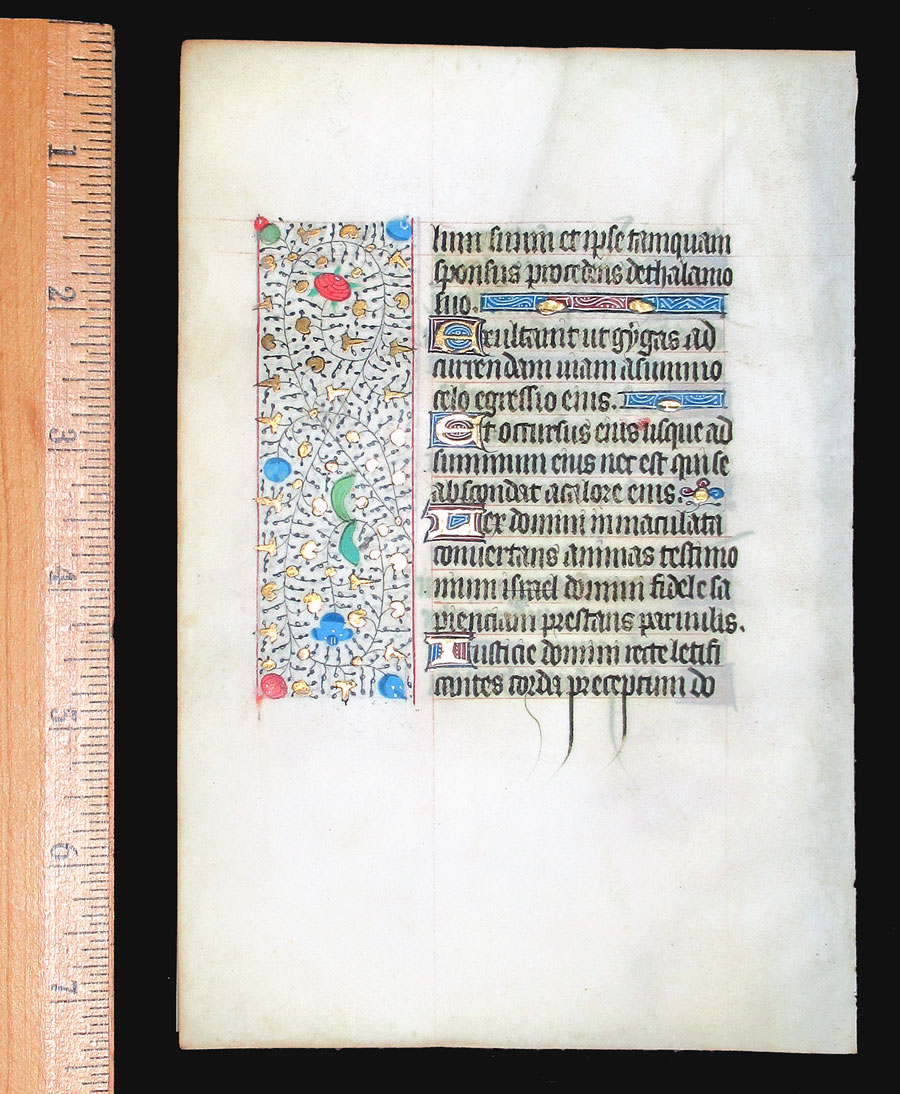 1
2
3
4
5
6
7
lum suum et ipse tamquam
sponsus procedens dethalamo
suo.
Exultauit ut gygas ad
currendam uiam asummo
celo egressio eius.
Et occursus eius usque ad
summum eius nec est qui se
abscondat acalore eius.
Lex domini inmaculata
conuertans animas testimo
nium israel domini fidele sa
pienciam prestans paruulis.
Iusticie domini recte letifi
cantes corda preceptum do